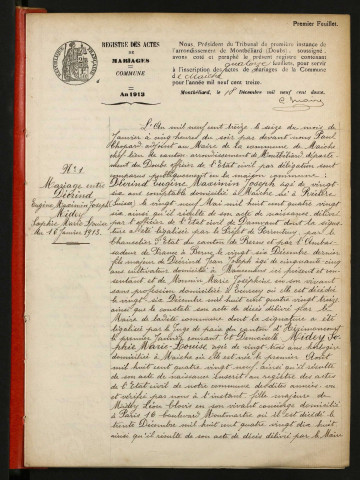 Premier Feuillet.
REGISTRE DES ACTES
DE
MARIAGES
COMMUNE
An 1913
Nous, Président du Tribunal de première instance de
l'arrondissement de Montbéliard (Doubs), soussigné,
avons coté et paraphé le présent registre contenant
feuillets, pour servir
à l'inscription des actes de mariages de la Commune
de Maîche
pour l'année mil neuf cent treize.
Montbéliard, le 18 Décembre mil neuf cent douze.
N° 1
Mariage entre
Diérind
Eugène Maximin Joseph
Midey
Sophie Marie Louise
du 16 janvier 1913.
L'An mil neuf cent treize le seize du mois de
Janvier à cinq heures du soir par devant nous Paul
adjoint au Maire de la commune de Maîche
chef lieu de canton arrondissement de Montbéliard départe
ment du Doubs officier de l'Etat civil par délégation sont
comparus publiquement en la maison commune
Diérind Eugène Maximin Joseph âgé de vingt
six ans domicilié à Maîche né à
(Suisse) le vingt Mai mil huit cent quatre vingt
six ainsi qu'il résulte de son acte de naissance délivré
par l'officier de l'Etat civil de Damvant dont la signa
ture a été légalisée par le Préfet de Porrentruy, par le
Chancelier d'Etat du canton de Berne et par l'Ambas
sadeur de France à Berne, le vingt six Décembre dernier,
fils majeur de Diérind Jean Joseph âgé de cinquante cinq
ans cultivateur domicilié à ici présent et con
sentant et de Monnin Marie Joséphine en son vivant
sans profession domiciliée à où elle est décédée
le vingt six Décembre mil huit cent quatre vingt treize
ainsi que le constate son acte de décès délivré par le
Maire de ladite commune dont la signature a été
légalisée par le Juge de paix du canton d'Hérimoncourt
le premier Janvier courant, et Demoiselle Midey So-
phie Marie-Louise âgée de vingt trois ans horlogère
domiciliée à Maîche où elle est née le premier Août
mil huit cent quatre vingt neuf ainsi qu'il résulte
de son acte de naissance inscrit au registre des actes
de l'Etat civil de notre commune desdites années vu
et vérifié par nous à l'instant fille majeure de
Midey Léon Clovis en son vivant concierge domicilié
à Paris 16 boulevard Montmartre où il est décédé le
trente Décembre mil huit cent quatre vingt dix huit
ainsi qu'il résulte de son acte de décès délivré par le Maire